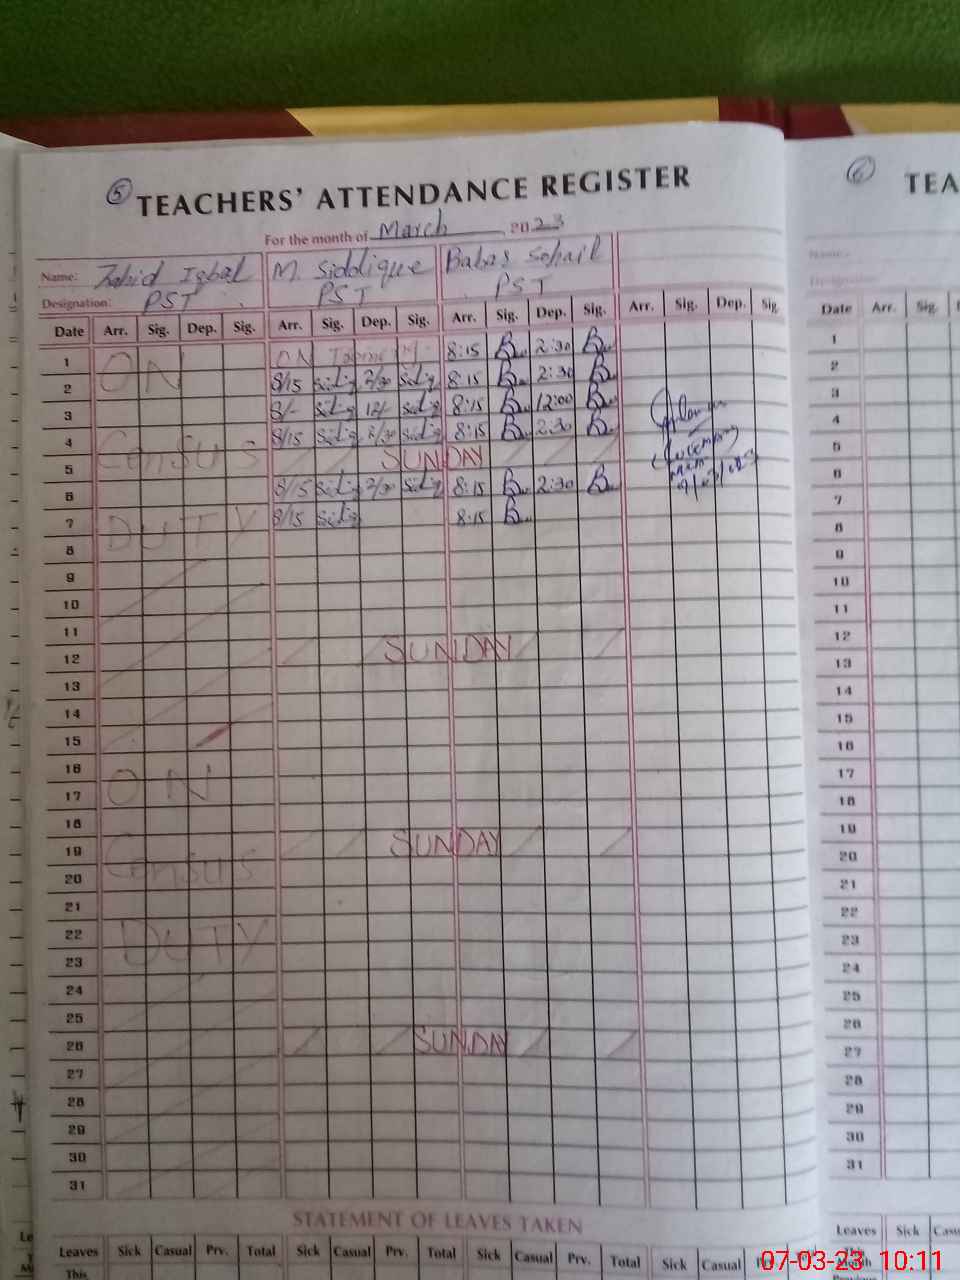 5 TEACHERS' ATTENDANCE REGISTER
For the month of March 2023
Name: Zahid Iqbal M. Siddique Babar Sohail
Designation: PST PST PST
Date Arr. Sig. Dep. Sig. Arr. Sig. Dep. Sig. Arr. Sig. Dep. Sig. Arr. Sig. Dep. Sig.
1 ON ON 8:15 2:30
2 8/15 2/30 8:15 2:30
3 8/- 12/- 8:15 12:00
4 Census 8/15 2/30 8:15 2:30
5 SUNDAY
6 8/15 2/30 8:15 2:30
7 DUTY 8/15 8:15
8
9
10
11
12 SUNDAY
13
14
15
16
17 ON
18
19 SUNDAY
20 Census
21
22
23 DUTY
24
25
26 SUNDAY
27
28
29
30
31
STATEMENT OF LEAVES TAKEN
Leaves Sick Casual Prv. Total Sick Casual Prv. Total Sick Casual Prv. Total Sick Casual
This
6 TEA
Name:
Designation:
Date Arr. Sig.
1
2
3
4
5
6
7
8
9
10
11
12
13
14
15
16
17
18
19
20
21
22
23
24
25
26
27
28
29
30
31
Leaves Sick Casu
This
Month
07-03-23 10:11